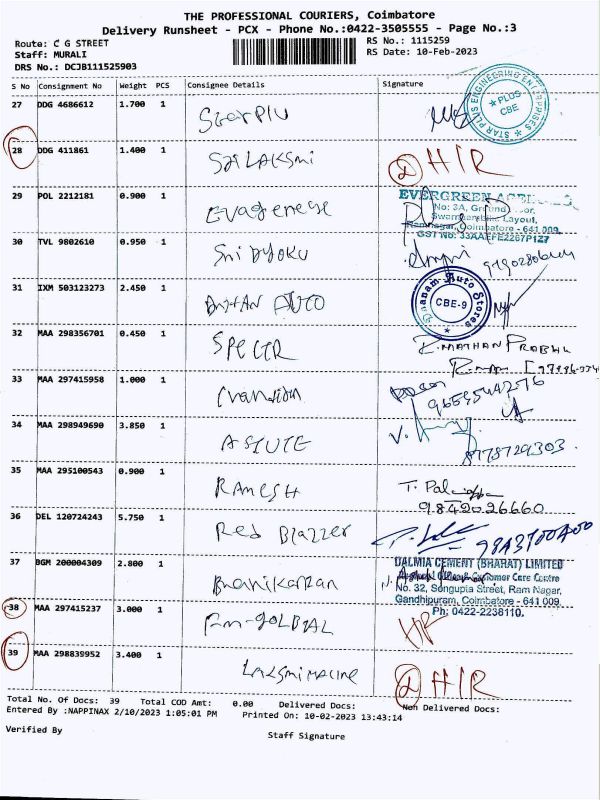 THE PROFESSIONAL COURIERS, Coimbatore
Delivery Runsheet - PCX - Phone No.:0422-3505555 - Page No.:3
Route: C G STREET
Staff: MURALI
DRS No.: DCJB111525903
RS No.: 1115259
RS Date: 10-Feb-2023
S No Consignment No Weight PCS Consignee Details Signature
27 DDG 4686612 1.700 1 Star Plu
STAR PLUS ENGINEERING ENTERPRISES
PLUS
CBE
28 DDG 411861 1.400 1 Sri Laksmi H/R
29 POL 2212181 0.900 1 Evagenese
EVERGREEN
No: 3A, Ground Floor,
Layout,
Ramnagar, Coimbatore - 641 009.
GST No: 33AAEFE2267P1Z7
30 TVL 9802610 0.950 1
31 IXM 503123273 2.450 1 AUTO
Gnanam Auto Stores
CBE-9
32 MAA 298356701 0.450 1 SPECTR
R. MATHAN PRABHU
33 MAA 297415958 1.000 1
9659544276
34 MAA 298949690 3.850 1 ASTUTE
8778729303
35 MAA 295100543 0.900 1 RAMESH
T. Pal
9842026660
36 DEL 120724243 5.750 1 Red Blazzer
37 BGM 200004309 2.800 1 Manikandan
DALMIA CEMENT (BHARAT) LIMITED
Customer Care Centre
No. 32, Sengupta Street, Ram Nagar,
Gandhipuram, Coimbatore - 641 009
Ph: 0422-2238110.
38 MAA 297415237 3.000 1 H/R
39 MAA 298839952 3.400 1 Laksmi macine H/R
Total No. Of Docs: 39 Total COD Amt: 0.00 Delivered Docs: Non Delivered Docs:
Entered By :NAPPINAX 2/10/2023 1:05:01 PM Printed On: 10-02-2023 13:43:14
Verified By Staff Signature